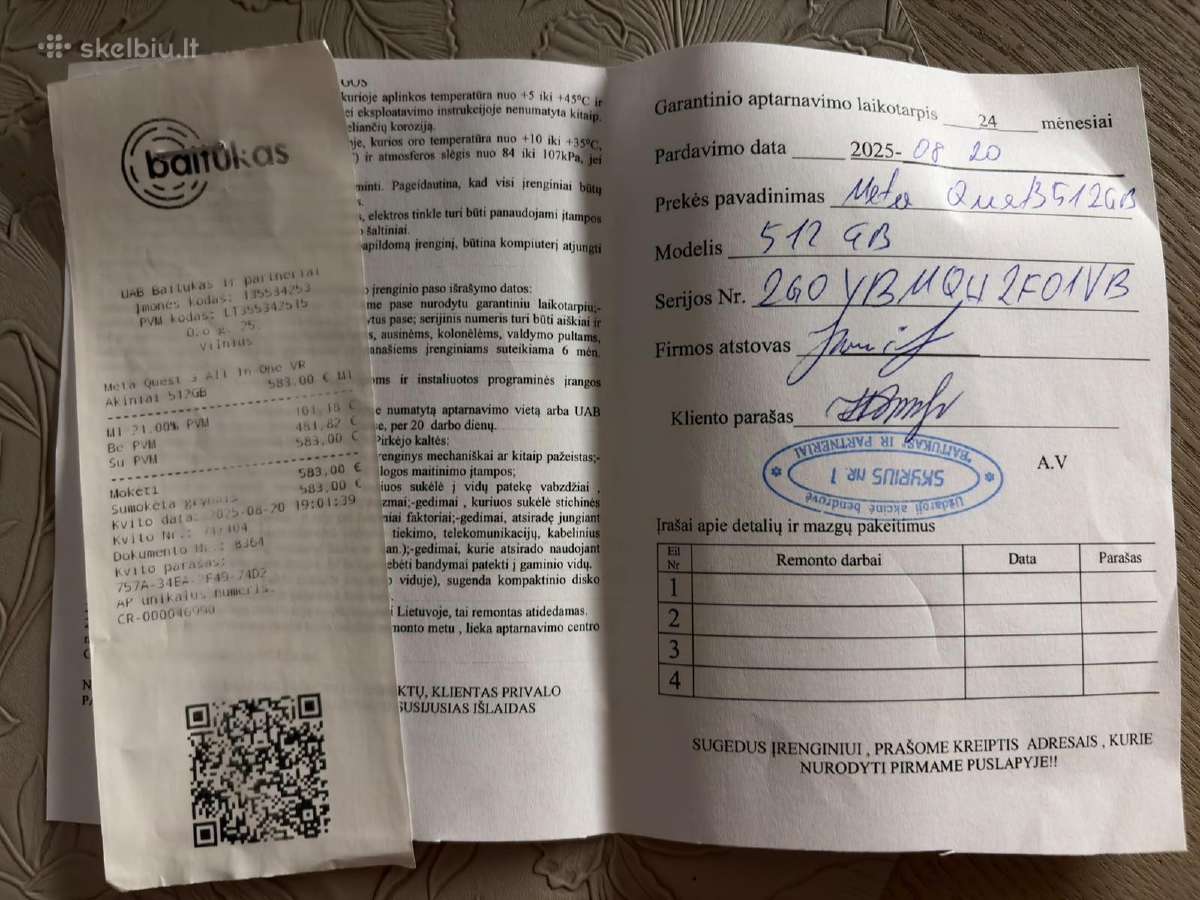 skelbiu.lt
baitukas
UAB Baitukas ir partneriai
Įmonės kodas: 135534253
PVM kodas: LT355342515
Ozo g. 25
Vilnius
Meta Quest 3 All In One VR
Akiniai 512GB 583,00 € M1
M1 21.00% PVM 101,18 €
Be PVM 481,82 €
Su PVM 583,00 €
Mokėti 583,00 €
Sumokėta grynais 583,00 €
Kvito data: 2025-08-20 19:01:39
Kvito Nr.:
Dokumento Nr.: 8364
Kvito parašas:
AP unikalus numeris:
CR-000046990
kurioje aplinkos temperatūra nuo +5 iki +45°C ir
ei eksploatavimo instrukcijoje nenumatyta kitaip.
eliančių koroziją.
je, kurios oro temperatūra nuo +10 iki +35°C,
) ir atmosferos slėgis nuo 84 iki 107kPa, jei
minti. Pageidautina, kad visi įrenginiai būtų
s.
, elektros tinkle turi būti panaudojami įtampos
šaltiniai.
apildomą įrenginį, būtina kompiuterį atjungti
o įrenginio paso išrašymo datos:
me pase nurodytu garantiniu laikotarpiu;-
ytus pase; serijinis numeris turi būti aiškiai ir
s, ausinėms, kolonėlėms, valdymo pultams,
anašiems įrenginiams suteikiama 6 mėn.
oms ir instaliuotos programinės įrangos
e numatytą aptarnavimo vietą arba UAB
se, per 20 darbo dienų.
Pirkėjo kaltės:
renginys mechaniškai ar kitaip pažeistas;-
logos maitinimo įtampos;
iuos sukėlė į vidų patekę vabzdžiai ,
zmai;-gedimai , kuriuos sukėlė stichinės
niai faktoriai;-gedimai, atsiradę jungiant
tiekimo, telekomunikacijų, kabelinius
an.);-gedimai, kurie atsirado naudojant
ebėti bandymai patekti į gaminio vidų.
o viduje), sugenda kompaktinio disko
i Lietuvoje, tai remontas atidedamas.
monto metu , lieka aptarnavimo centro
KTŲ, KLIENTAS PRIVALO
SUSIJUSIAS IŠLAIDAS
Garantinio aptarnavimo laikotarpis 24 mėnesiai
Pardavimo data 2025-08 20
Prekės pavadinimas Meta Quest3 512GB
Modelis 512 GB
Serijos Nr. 2G0YBMQH2F01VB
Firmos atstovas
Kliento parašas
A.V
Uždaroji akcinė bendrovė
SKYRIUS NR 1
"BAITUKAS" IR PARTNERIAI
Įrašai apie detalių ir mazgų pakeitimus
Eil Nr Remonto darbai Data Parašas
1
2
3
4
SUGEDUS ĮRENGINIUI , PRAŠOME KREIPTIS ADRESAIS , KURIE
NURODYTI PIRMAME PUSLAPYJE!!